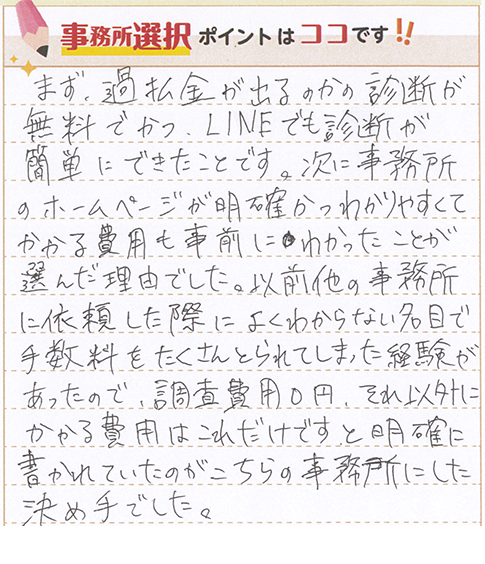 事務所選択 ポイントは ココです!!
まず、過払金が出るのかの診断が
無料でかつ、LINEでも診断が
簡単にできたことです。次に事務所
のホームページが明確かつわかりやすくて
かかる費用も事前にわかったことが
選んだ理由でした。以前他の事務所
に依頼した際によくわからない名目で
手数料をたくさんとられてしまった経験が
あったので、調査費用0円、それ以外に
かかる費用はこれだけですと明確に
書かれていたのがこちらの事務所にした
決め手でした。